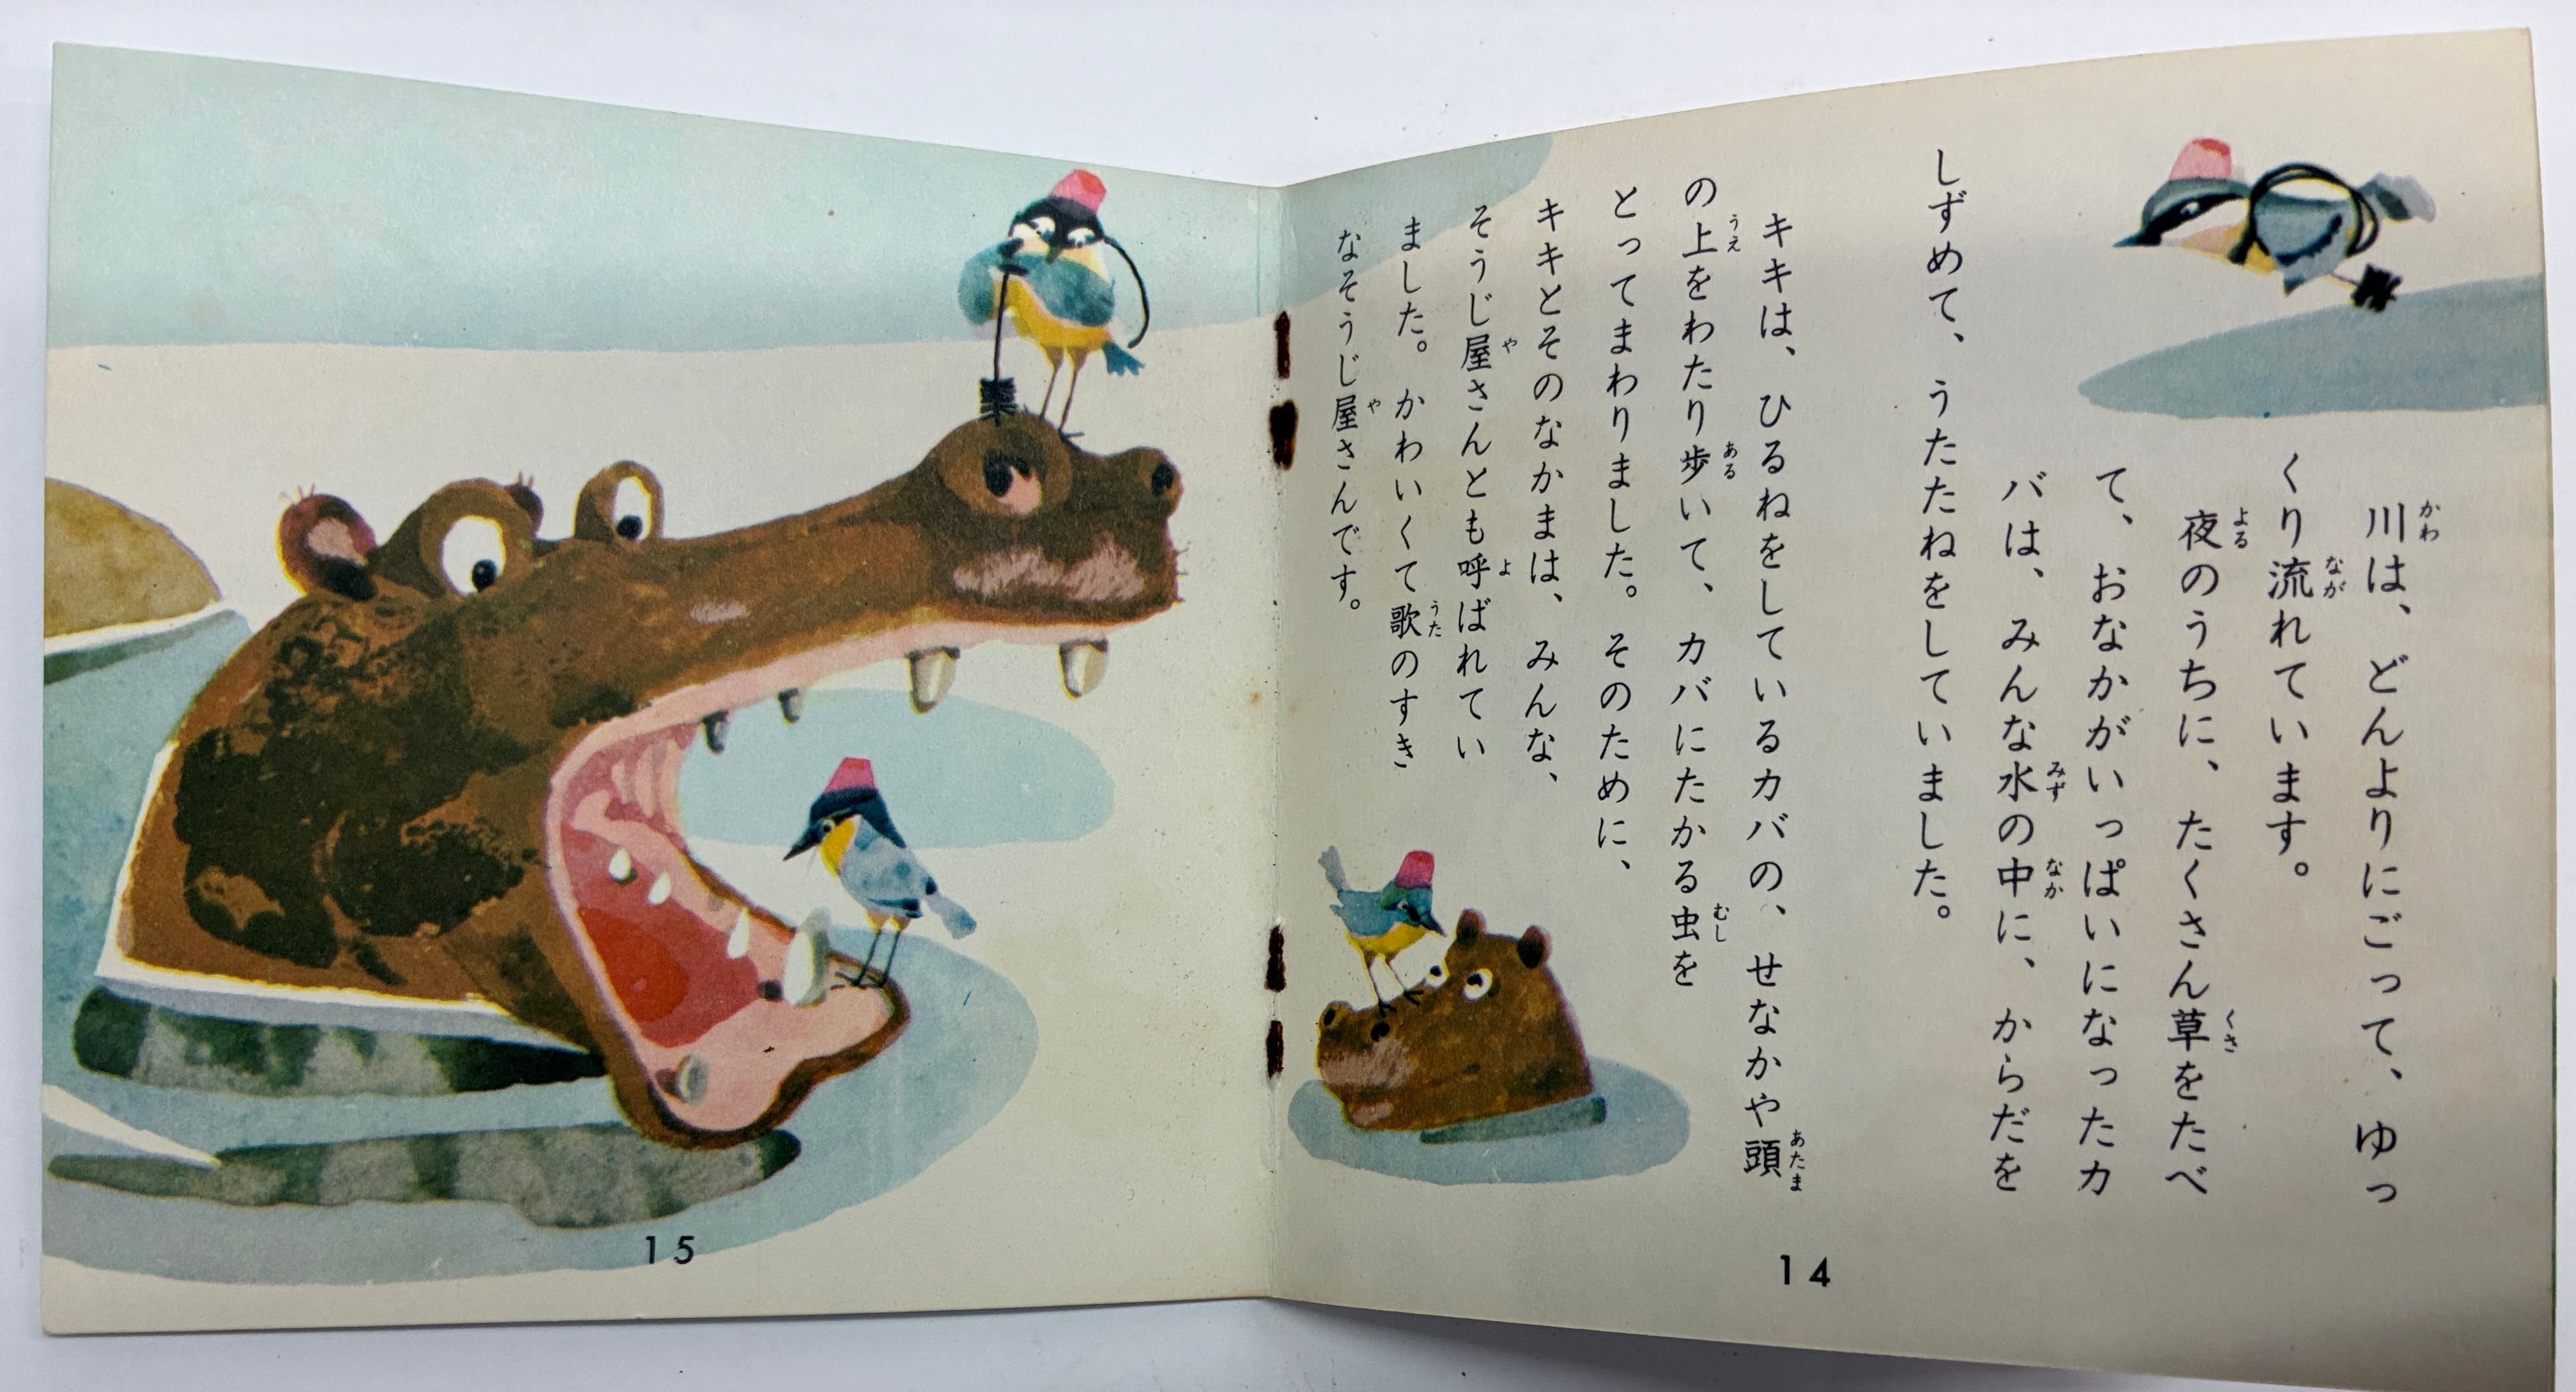 川は、どんよりにごって、ゆっ
くり流れています。
夜のうちに、たくさん草をたべ
て、おなかがいっぱいになったカ
バは、みんな水の中に、からだを
しずめて、うたたねをしていました。
キキは、ひるねをしているカバの、せなかや頭
の上をわたり歩いて、カバにたかる虫を
とってまわりました。そのために、
キキとそのなかまは、みんな、
そうじ屋さんとも呼ばれてい
ました。かわいくて歌のすき
なそうじ屋さんです。
かわ
なが
よる
くさ
みず
なか
あたま
うえ
ある
むし
や
よ
うた
や
14
15